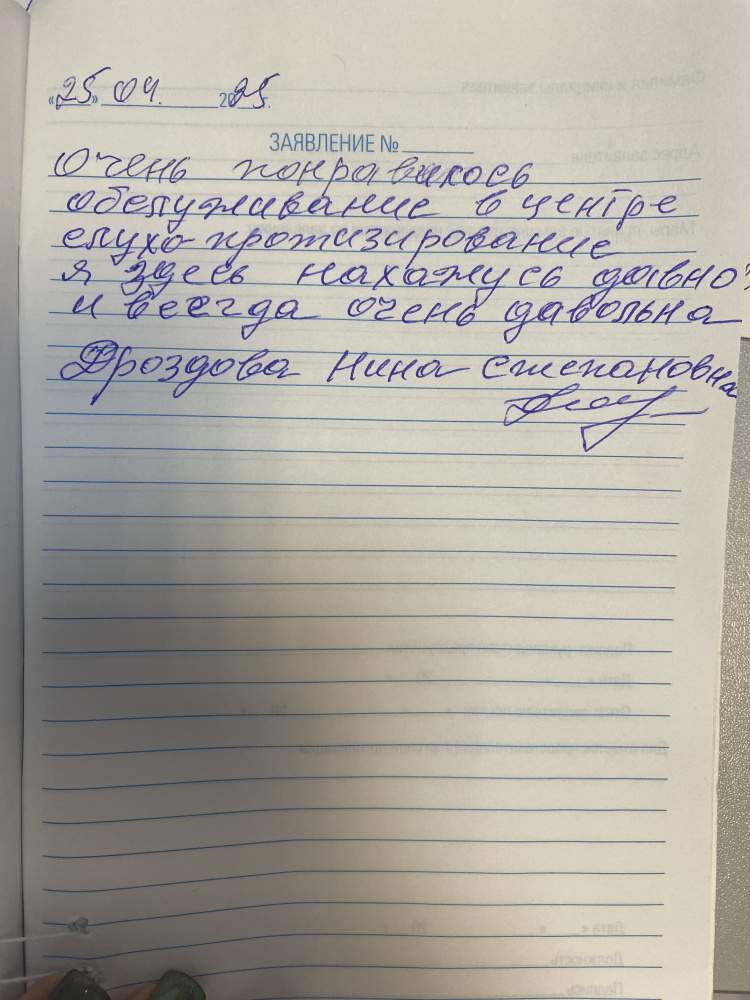 «25» 04. 2025г.
ЗАЯВЛЕНИЕ №
Очень понравилось
обслуживание в центре
слухо протизирование
я здесь нахажусь давно
и всегда очень давольна
Дроздова Нина Степановна